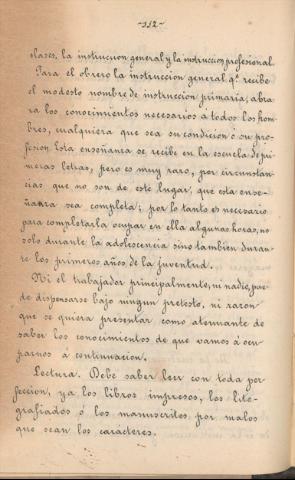 -112-
clases, la instruccion general y la instruccion profesional.
Para el obrero la instruccion general q.e recibe
el modesto nombre de instruccion primaria, abra
za los conocimientos necesarios a todos los hom
bres, cualquiera que sea su condicion ó su pro-
fesion. Esta enseñanza se recibe en la escuela de pri
meras letras, pero es muy raro, por circunstan
cias que no son de este lugar, que esta ense-
ñanza sea completa; por lo tanto es necesario
para completarla ocupar en ella algunas horas, no
solo durante la adolescencia sino tambien duran-
te los primeros años de la juventud.
Ni el trabajador principalmente, ni nadie, pue-
de dispensarse bajo ningun pretesto, ni razon
que se quiera presentar como atenuante de
saber los conocimientos de que vamos á ocu
parnos á continuacion.
Lectura. Debe saber leer con toda per
feccion, ya los libros impresos, los lito-
grafiados ó los manuscritos, por malos
que sean los carácteres.